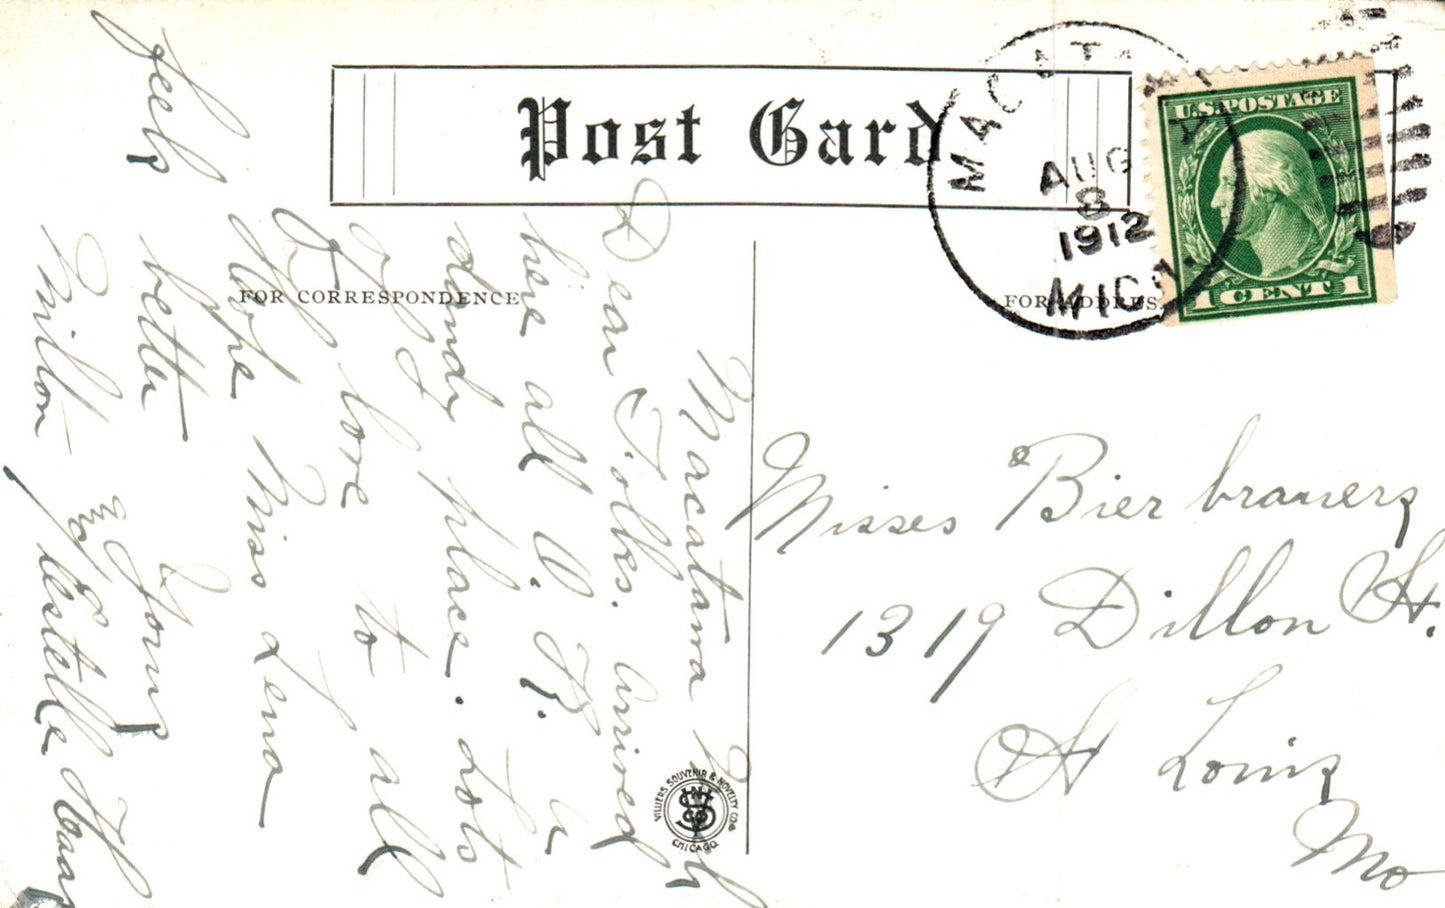 Post Card
FOR CORRESPONDENCE
FOR ADDRESS
MACATAWA
AUG
8
1912
MICH.
U.S. POSTAGE
1 CENT 1
Macatawa Mich
Dear Folks. Arrived
here all O.K.
dandy place. Lots
of love to all
Hope Miss Lena
feels better
Yours
Milton & Estelle Haas
Misses Bierbrauers
1319 Dillon St.
St Louis
Mo
VILLIERS SOUVENIR & NOVELTY CO.
CHICAGO